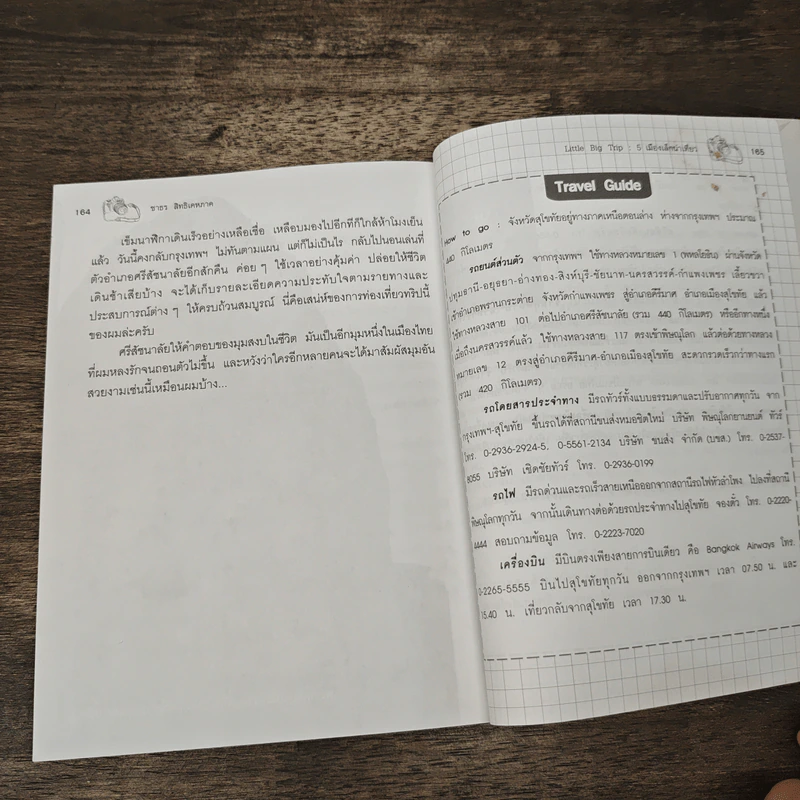 164 ชาธร สิทธิเคหภาค
เข็มนาฬิกาเดินเร็วอย่างเหลือเชื่อ เหลือบมองไปอีกทีก็ใกล้ห้าโมงเย็น
แล้ว วันนี้คงกลับกรุงเทพฯ ไม่ทันตามแผน แต่ก็ไม่เป็นไร กลับไปนอนเล่นที่
ตัวอำเภอศรีสัชนาลัยอีกสักคืน ค่อยๆ ใช้เวลาอย่างคุ้มค่า ปล่อยให้ชีวิต
เดินช้าเสียบ้าง จะได้เก็บรายละเอียดความประทับใจตามรายทางและ
ประสบการณ์ต่างๆ ให้ครบถ้วนสมบูรณ์ นี่คือเสน่ห์ของการท่องเที่ยวทริปนี้
ของผมล่ะครับ
ศรีสัชนาลัยให้คำตอบของมุมสงบในชีวิต มันเป็นอีกมุมหนึ่งในเมืองไทย
ที่ผมหลงรักจนถอนตัวไม่ขึ้น และหวังว่าใครอีกหลายคนจะได้มาสัมผัสมุมอัน
สวยงามเช่นนี้เหมือนผมบ้าง...
Little Big Trip : 5 เมืองเล็กน่าเที่ยว 165
Travel Guide
How to go : จังหวัดสุโขทัยอยู่ทางภาคเหนือตอนล่าง ห่างจากกรุงเทพฯ ประมาณ
440 กิโลเมตร
รถยนต์ส่วนตัว จากกรุงเทพฯ ใช้ทางหลวงหมายเลข 1 (พหลโยธิน) ผ่านจังหวัด
ปทุมธานี-อยุธยา-อ่างทอง-สิงห์บุรี-ชัยนาท-นครสวรรค์-กำแพงเพชร เลี้ยวขวา
เข้าอำเภอพรานกระต่าย จังหวัดกำแพงเพชร สู่อำเภอคีรีมาศ อำเภอเมืองสุโขทัย แล้ว
ใช้ทางหลวงสาย 101 ต่อไปอำเภอศรีสัชนาลัย (รวม 440 กิโลเมตร) หรืออีกทางหนึ่ง
เมื่อถึงนครสวรรค์แล้ว ใช้ทางหลวงสาย 117 ตรงเข้าพิษณุโลก แล้วต่อด้วยทางหลวง
หมายเลข 12 ตรงสู่อำเภอคีรีมาศ-อำเภอเมืองสุโขทัย สะดวกรวดเร็วกว่าทางแรก
(รวม 420 กิโลเมตร)
รถโดยสารประจำทาง มีรถทัวร์ทั้งแบบธรรมดาและปรับอากาศทุกวัน จาก
กรุงเทพฯ-สุโขทัย ขึ้นรถได้ที่สถานีขนส่งหมอชิตใหม่ บริษัท พิษณุโลกยานยนต์ ทัวร์
โทร. 0-2936-2924-5, 0-5561-2134 บริษัท ขนส่ง จำกัด (บขส.) โทร. 0-2537-
8055 บริษัท เชิดชัยทัวร์ โทร. 0-2936-0199
รถไฟ มีรถด่วนและรถเร็วสายเหนือออกจากสถานีรถไฟหัวลำโพง ไปลงที่สถานี
พิษณุโลกทุกวัน จากนั้นเดินทางต่อด้วยรถประจำทางไปสุโขทัย จองตั๋ว โทร. 0-2220-
4444 สอบถามข้อมูล โทร. 0-2223-7020
เครื่องบิน มีบินตรงเพียงสายการบินเดียว คือ Bangkok Airways โทร.
0-2265-5555 บินไปสุโขทัยทุกวัน ออกจากกรุงเทพฯ เวลา 07.50 น. และ
15.40 น. เที่ยวกลับจากสุโขทัย เวลา 17.30 น.